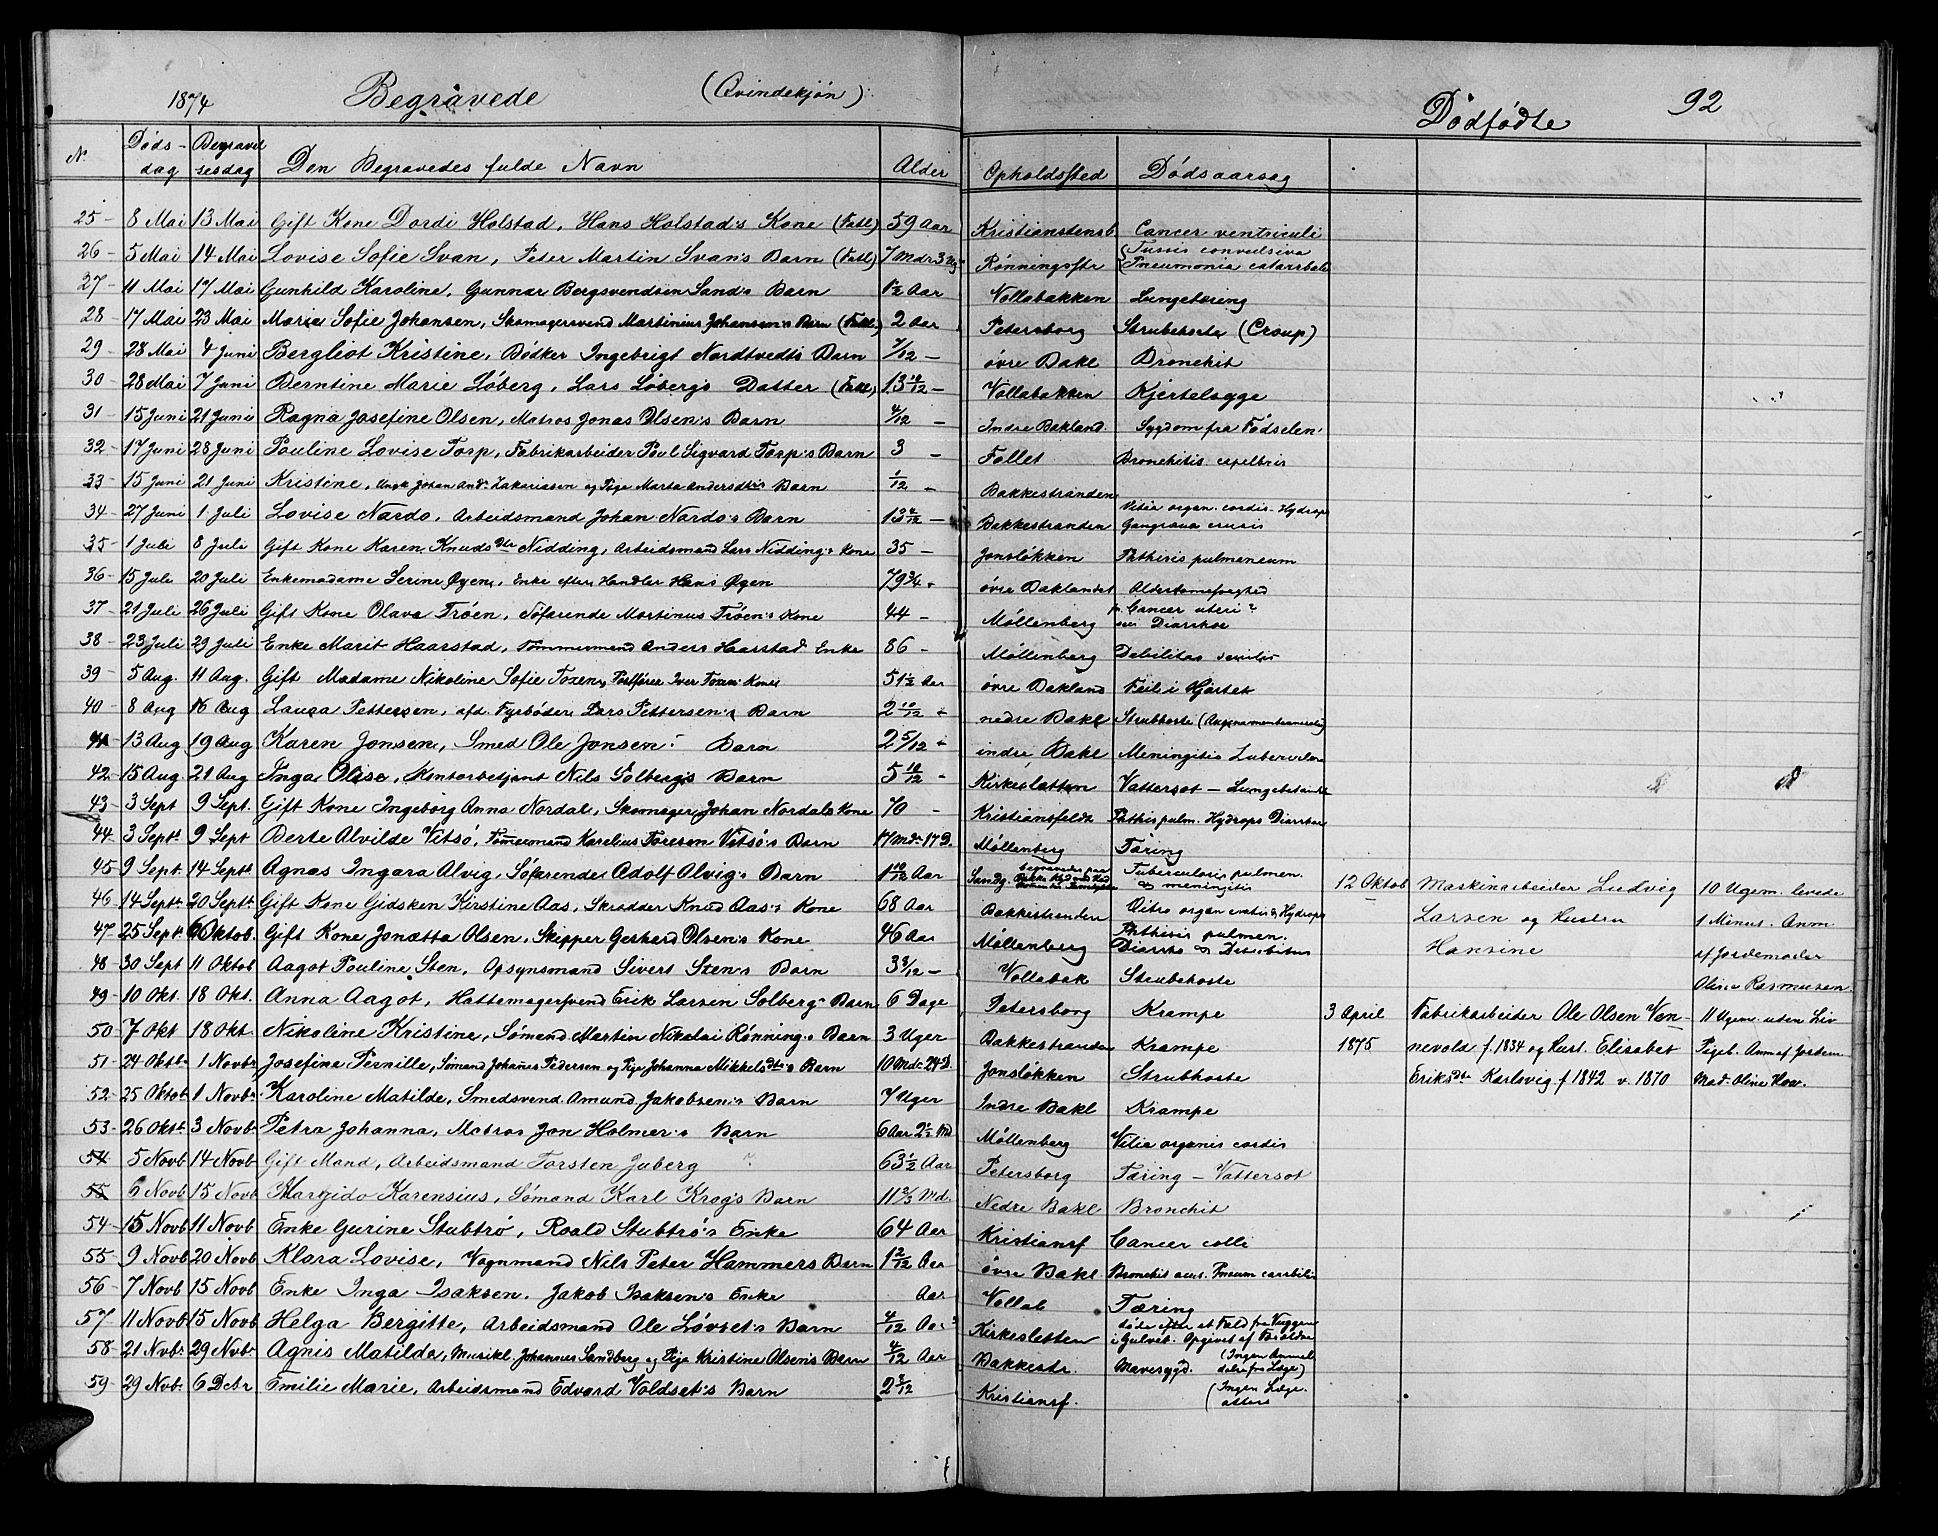 1874 Begravede (Qvindekjøn) Dødfødte 92
No Døds-dag Begravelsesdag Den Begravedes fulde Navn Alder Opholdssted Dødsaarsag
25 - 8 Mai 13 Mai Gift Kone Dordi Holstad, Hans Holstad's Kone (Fatl) 59 Aar Kristianstensb Cancer ventriculi
26 - 5 Mai 14 Mai Lovise Sofie Svan, Peter Martin Svan's Barn (Fatl) 7 Mdr 3 Ug Rønningsstr Tussis convulsiva Pneumonia catarrhalis
27 - 11 Mai 17 Mai Gunhild Karoline, Gunnar Bergsvendsen Sand's Barn 1½ Aar Vollabakken Lungetæring
28 - 17 Mai 23 Mai Marie Sofie Johansen, Skomagersvend Martinius Johansen's Barn (Fatl) 2 Aar Petersborg Strubehoste (Croup)
29 - 28 Mai 4 Juni Bergliot Kristine, Bødker Ingebrigt Nordtvedts Barn 7/12 - øvre Bakl Bronchit
30 - 28 Mai 7 Juni Berntine Marie Løberg, Lars Løberg's Datter (Fatl) 13 10/12 - Vollabakken Kjertelsyge
31 - 15 Juni 21 Juni Ragna Josefine Olsen, Matros Jonas Olsen's Barn 4/12 - Indre Bakland. Sygdom fra Fødselen
32 - 17 Juni 28 Juni Pauline Lovise Torp, Fabrikarbeider Poul Sigvard Torp's Barn 3 - Fallet Bronchitis capilbris
33 - 15 Juni 21 Juni Kristine, Ungk Johan Andr. Zakariasen og Pige Marta Andersdtr's Barn 1/12 - Bakkestranden
34 - 27 Juni 1 Juli Lovise Nardo, Arbeidsmand Johan Nardo's Barn 13 4/12 - Bakkestranden Vitia organ. cordis. Hydrops Gangræna cruris
35 - 1 Juli 8 Juli Gift Kone Karen Knudsdtr Nidding, Arbeidsmand Lars Nidding's Kone 35 - Jonsløkken Phthisis pulmonum
36 - 15 Juli 20 Juli Enkemadame Serine Øyen, Enke efter Handler Hans Øyen 79¾ - øvre Baklandet Alderdomssvaghed
37 - 21 Juli 26 Juli Gift Kone Olava Trøen, Søfarende Martinus Trøen's Kone 44 - Møllenberg Cancer uteri? Diarrhoe
38 - 23 Juli 29 Juli Enke Marit Haarstad, Tømmermand Anders Haarstad Enke 86 - Møllenberg Debilitas senilis
39 - 5 Aug. 11 Aug. Gift Madame Nikoline Sofie Foxen, Postfører Iver Foxen Kone 51½ Aar øvre Bakland Feil i Hjertet
40 - 8 Aug 16 Aug Laura Pettersen, afd. Fyrbøder Lars Pettersen's Barn 2 10/12 - nedre Bakl Strubhoste
41 13 Aug 19 Aug Karen Jonsen, Smed Ole Jonsen's Barn 2 5/12 - indre Bakl Meningitis Tuberculosa
42 - 15 Aug. 21 Aug Inga Olise, Kontorbetjent Nils Solberg's Barn 5 10/12 - Kirkesletten Vattersot - Lungebetændelse
43 - 3 Sept 9 Sept. Gift Kone Ingeborg Anna Nordal, Skomager Johan Nordals Kone 70 - Kristiansfeldt Phthis pulm. Hydrops Diarrhoe
44 - 3 Sept. 9 Sept Berte Alvilde Vitsø, Tømmermand Karelius Toresen Vitsø's Barn 11 Mdr 17 D. Møllenberg Tæring
45 - 9 Sept. 14 Sept. Agnas Ingara Alvig, Søfarende Adolf Alvig's Barn 1 10/12 Aar Tuberculosis pulmon. & meningitis 12 Oktob Maskinarbeider Ludvig 10 Ugem. levede
46 - 14 Sept. 20 Sept. Gift Kone Gidsken Kirstine Aas, Skrædder Knud Aas's Kone 68 Aar Bakkestranden Vitia organ cordis & Hydrops Larsen og Hustru 1 Minut. Anm.
47 - 25 Sept. 6 Oktob. Gift Kone Jonetta Olsen, Skipper Gerhard Olsen's Kone 46 Aar Møllenberg Phthisis pulmon. Diarrho & Decubitus Hansine af Jordemoder
48 - 30 Sept 11 Oktob Aagot Pauline Sten, Opsynsmand Sivert Sten's Barn 3 3/12 - Vollabak Strubehoste Oline Rasmusen
49 - 10 Okt. 18 Okt. Anna Aagot, Hattemagersvend Erik Larsen Solberg's Barn 6 Dage Petersborg Krampe 3 April Fabrikarbeider Ole Olsen Ven- 11 Ugem. uden Liv
50 - 7 Okt 18 Okt. Nikoline Kristine, Sømand Martin Nikolai Rønning's Barn 3 Uger Bakkestranden Krampe 1875 nevold f. 1834 og Hust. Elisabet Pigeb. Anm af Jordem
51 - 24 Oktbr 1 Novbr Josefina Pernille, Sømand Johanes Pedersen og Pige Johanna Mikkelsdtr's Barn 10 Mdr 24 D. Jonsløkken Strubhoste Eriksdtr Karlsvig f 1842 v. 1870 Mad. Oline How.
52 - 25 Oktob 1 Novbr Karoline Matilde, Smedsvend Amund Jakobsen's Barn 7 Uger Indre Bakl Krampe
53 - 26 Okt. 3 Novb. Petra Johanna, Matros Jon Holmer's Barn 6 Aar 2½ Md Møllenberg Vitia organis cordis
54 5 Novb 14 Novb Gift Mand, Arbeidsmand Torsten Juberg ? 63½ Aar Petersborg Tæring - Vattersot
55 6 Novb 15 Novb Margido Karensius, Sømand Karl Krog's Barn 11 2/3 Md. Nedre Bakl Bronchit
54 - 15 Novb 11 Novb Enke Gurine Stubtrø, Roald Stubtrø's Enke 64 Aar Kristiansf Cancer colli
55 - 9 Novb 20 Novb Klara Lovise, Vognmand Nils Peter Hammers Barn 1 2/12 Aar øvre Bakl Bronchit acut.
56 - 7 Novb 15 Novb Enke Inga Isaksen, Jakob Isaksen's Enke Aar Vollab Tæring
57 - 11 Novb 15 Novb Helga Bergitte, Arbeidsmand Ole Løvset's Barn 4/12 Aar Kirkesletten døde efter et Fald fra Vuggen i Gulvet. Opgivet af Forældre
58 - 21 Nvbr 29 Nvbr Agnis Matilda, Musikl. Johannes Sandberg og Pige Kristine Olsen's Barn 4/12 Aar Bakkestr. Mavesygd. (Ingen Anmeldelse fra Læge)
59 - 29 Nvb. 6 Dcbr Emilie Marie, Arbeidsmand Edvard Voldset's Barn 2 7/12 Kristiansf. (Ingen Læge attest